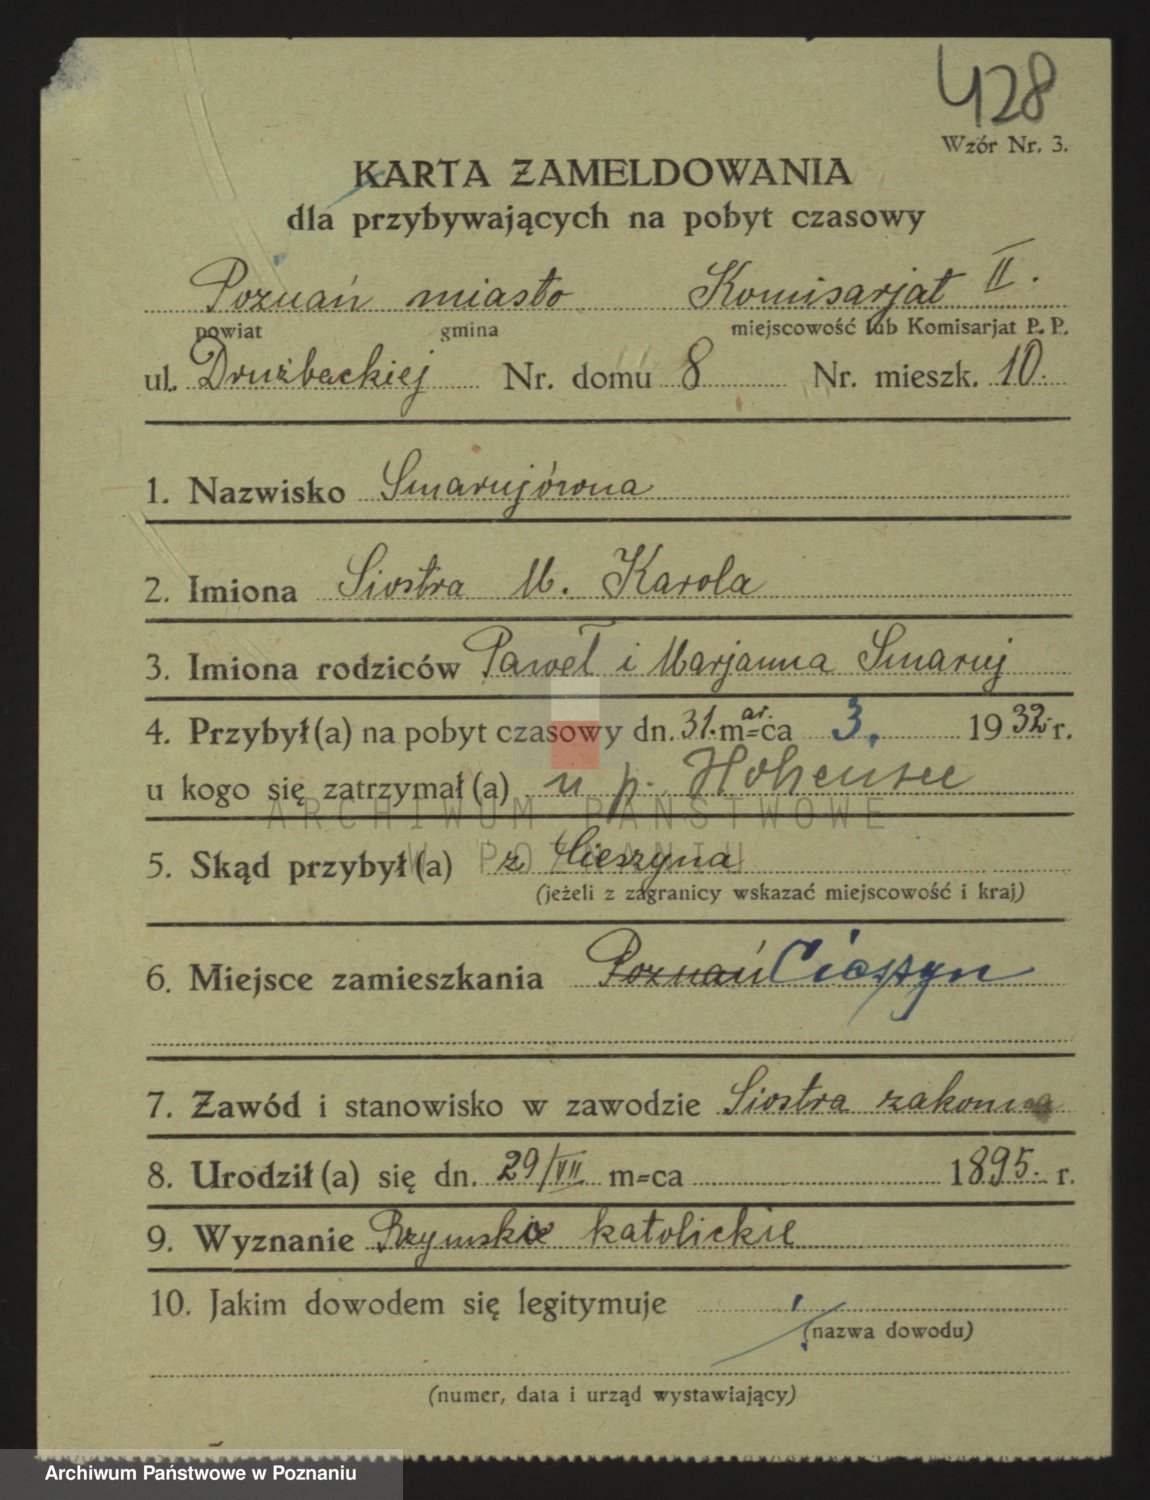 428
Wzór Nr. 3.
KARTA ZAMELDOWANIA
dla przybywających na pobyt czasowy
Poznań miasto Komisarjat II.
powiat gmina miejscowość lub Komisarjat P. P.
ul. Drużbackiej Nr. domu 8 Nr. mieszk. 10.
1. Nazwisko Smarujówna
2. Imiona Siostra M. Karola
3. Imiona rodziców Paweł i Marjanna Smaruj
4. Przybył(a) na pobyt czasowy dn. 31. m=ca ar. 3. 1932 r.
u kogo się zatrzymał(a) u p. Hohensee
ARCHIWUM PAŃSTWOWE
W POZNANIU
5. Skąd przybył(a) z Cieszyna
(jeżeli z zagranicy wskazać miejscowość i kraj)
6. Miejsce zamieszkania Poznań Cieszyn
7. Zawód i stanowisko w zawodzie Siostra zakonna
8. Urodził(a) się dn. 29/VII m=ca 1895. r.
9. Wyznanie Rzymskie katolickie
10. Jakim dowodem się legitymuje
(nazwa dowodu)
(numer, data i urząd wystawiający)
Archiwum Państwowe w Poznaniu